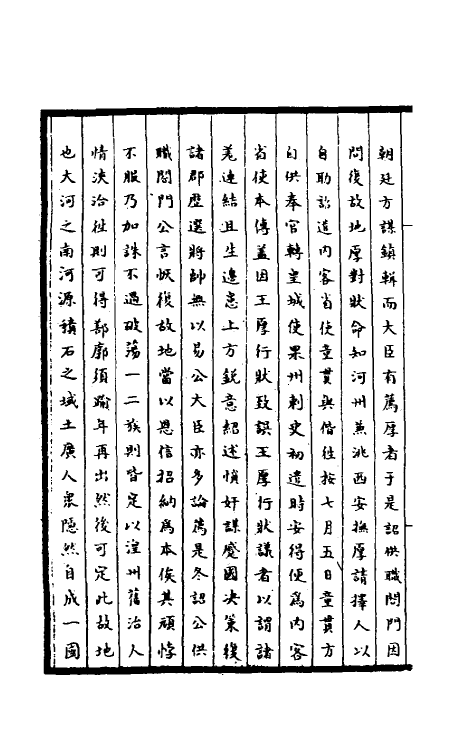 朝廷方謀鎮輯而大臣有薦厚者于是詔供職閤門因
問復故地厚對狀命知河州兼洮西安撫厚請擇人以
自助詔遣内客省使童貫與偕往按七月五日童貫方
自供奉官轉皇城使果州刺史初遣時安得便為内客
省使本傳蓋因王厚行狀致誤王厚行狀議者以謂諸
羌連結且生邊患上方鋭意紹述憤奸謀蹙國决策復
諸郡歴選將帥無以易公大臣亦多論薦是冬詔公供
職閤門公言恢復故地當以恩信招納為本俟其頑悖
不服乃加誅不過破蕩一二族則皆定以湟州舊治人
情浹洽徃則可得鄯廓須踰年再出然後可定此故地
也大河之南河源積石之域土廣人衆隠然自成一國